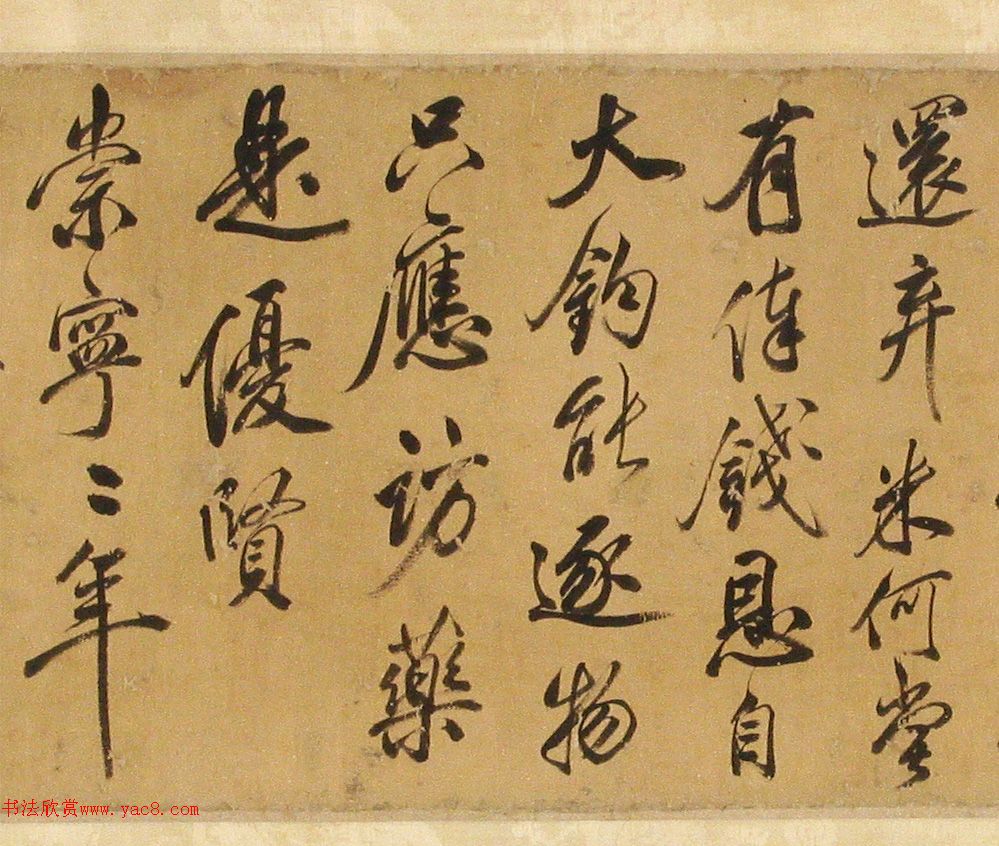 還弃米何嘗
有俸錢恩自
大鈞能逐物
只應訪藥
是優賢
崇寧二年
书法欣赏www.yac8.com